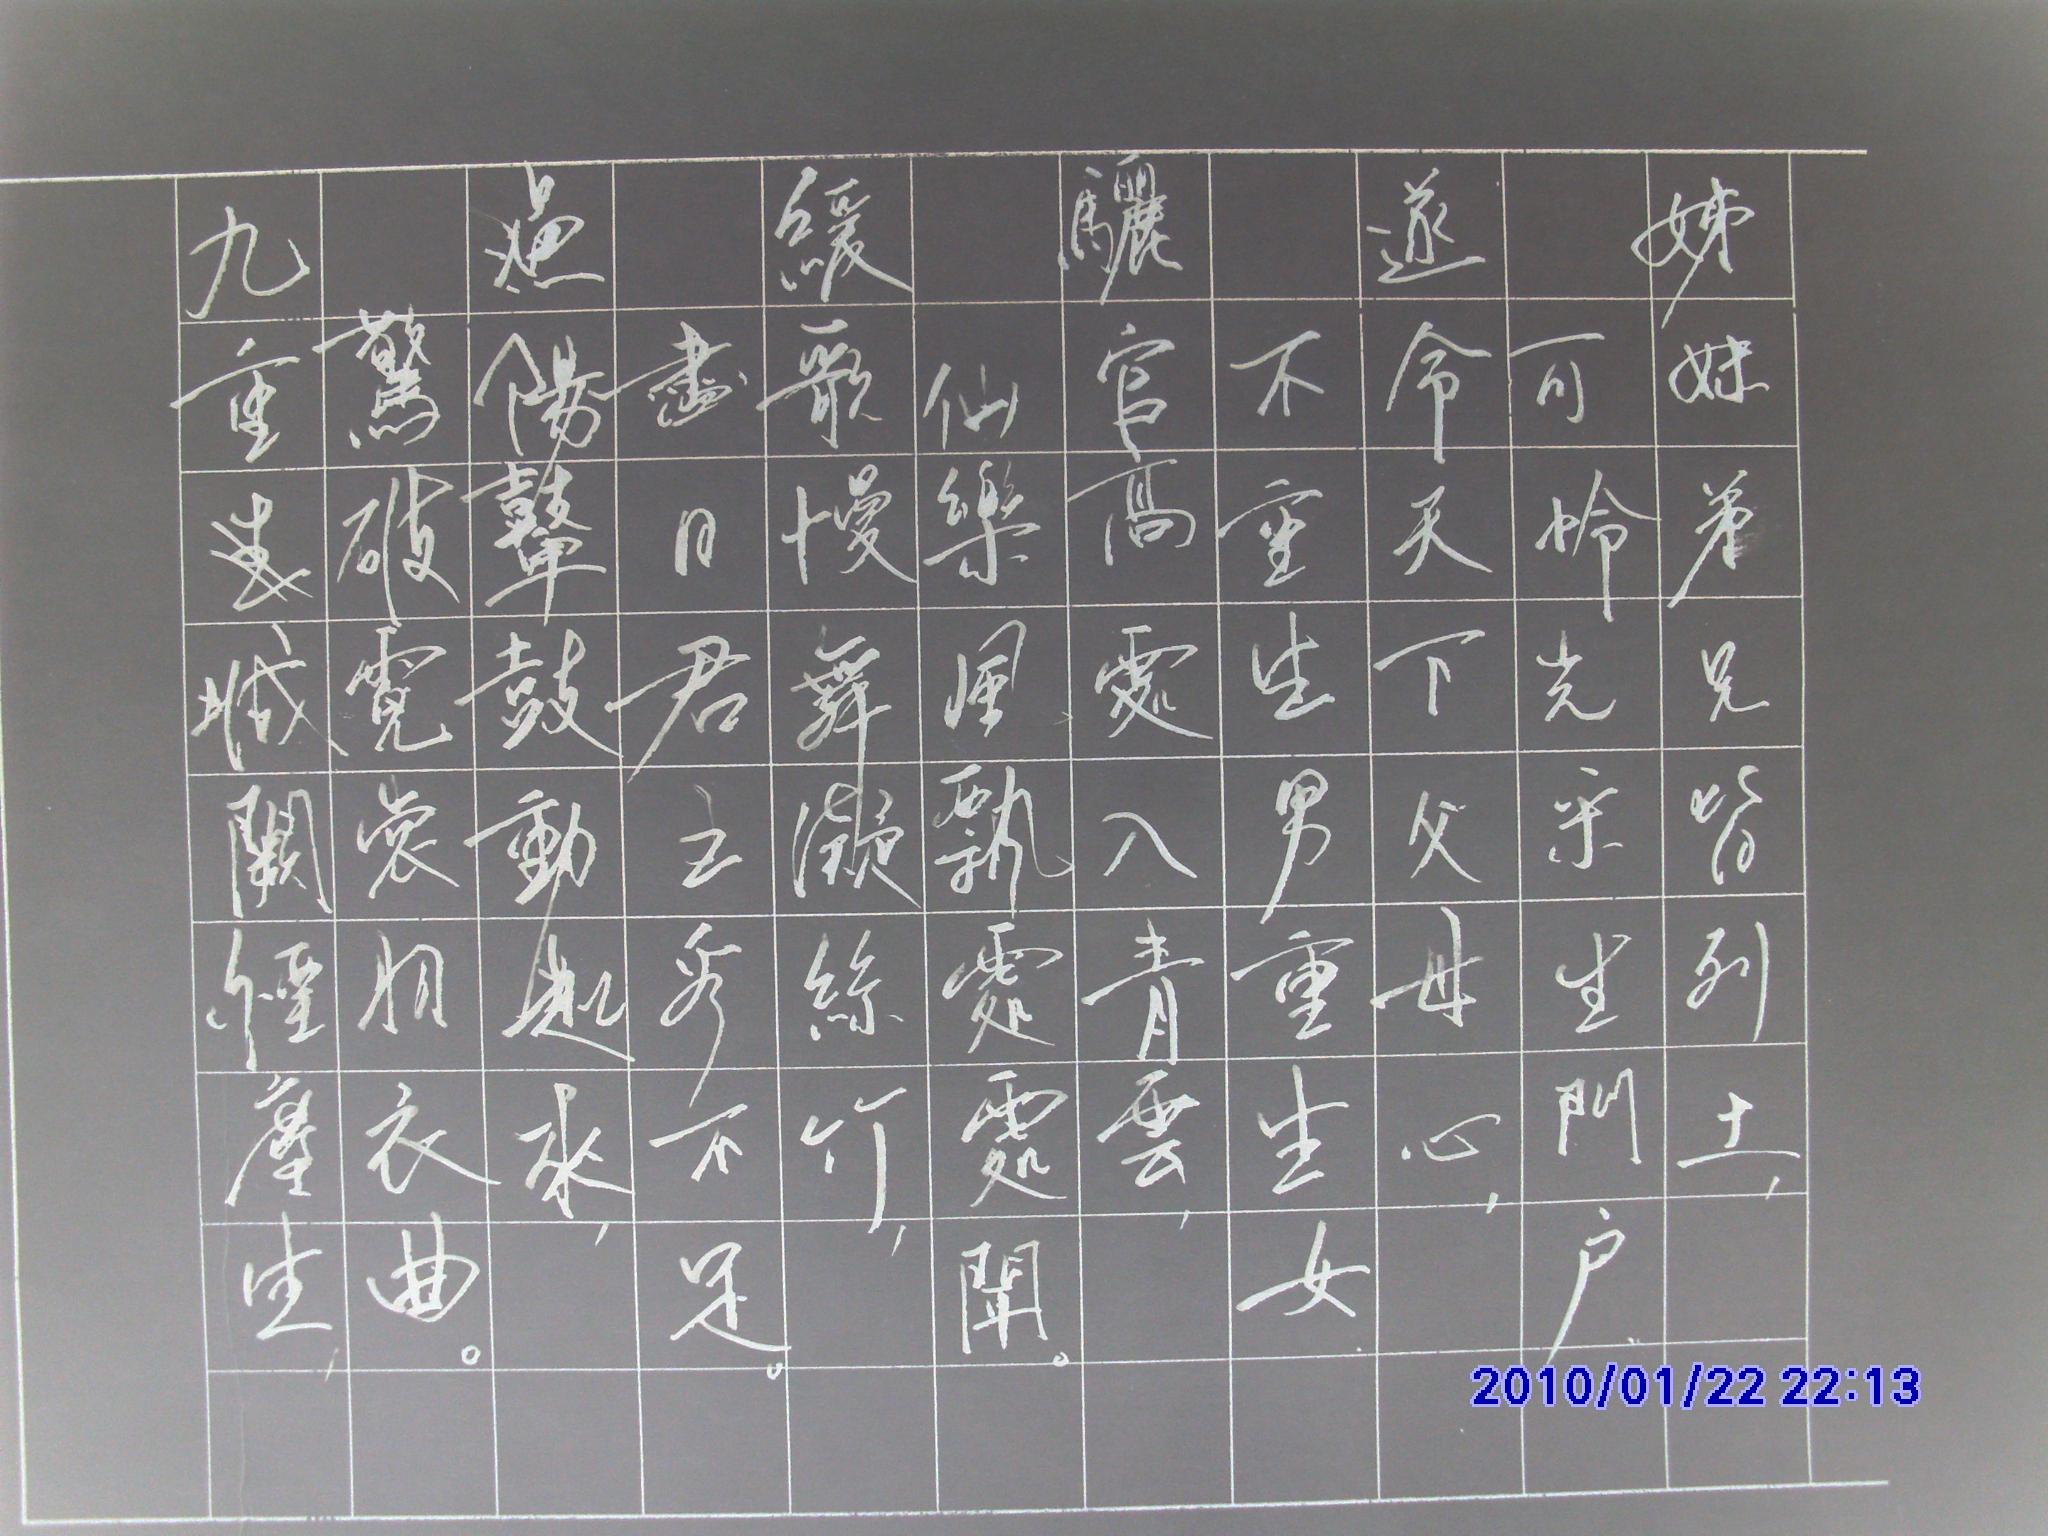 姊妹弟兄皆列土，
可憐光采生門户。
遂令天下父母心，
不重生男重生女.
驪宮高處入青雲，
仙樂風飄處處聞。
緩歌慢舞凝絲竹，
盡日君王看不足。
漁陽鼙鼓動起來，
驚破霓裳羽衣曲。
九重城闕煙塵生，
2010/01/22 22:13